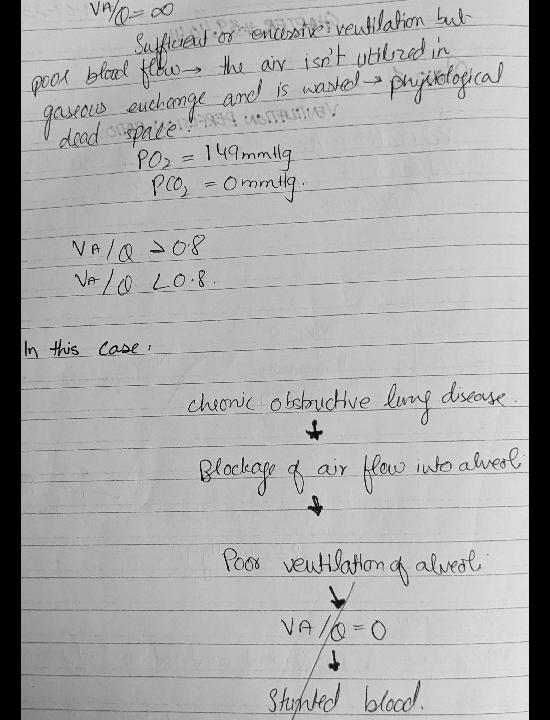 VA/Q = ∞
Sufficient or excessive ventilation but
poor blood flow → the air isn't utilized in
gaseous exchange and is wasted → physiological
dead space.
PO₂ = 149mmHg
PCO₂ = 0mmHg.
VA/Q > 0.8
VA/Q < 0.8.
In this case:
chronic obstructive lung disease.
↓
Blockage of air flow into alveoli
↓
Poor ventilation of alveoli
↓
VA/Q = 0
↓
Shunted blood.